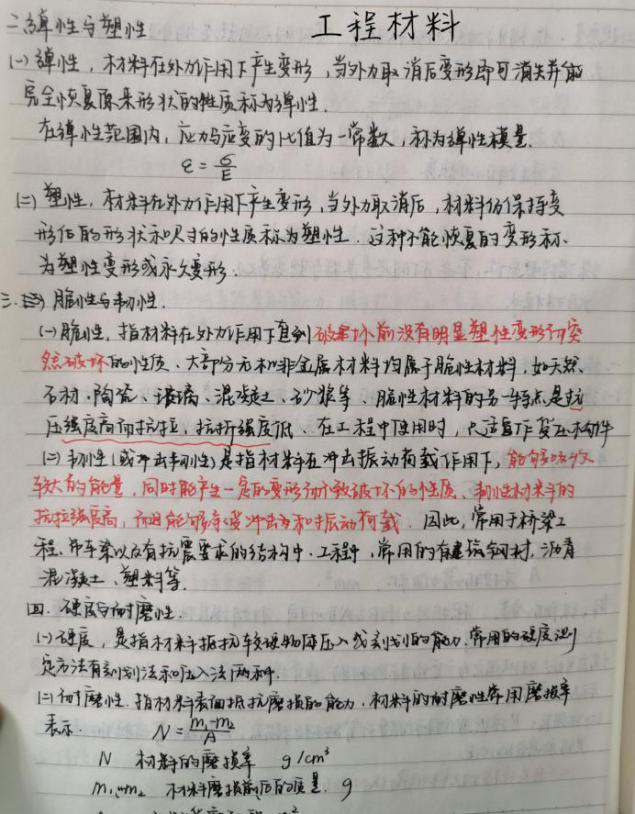 工程材料
二、弹性与塑性
(一)弹性，材料在外力作用下产生变形，当外力取消后变形即可消失并能
完全恢复原来形状的性质称为弹性.
在弹性范围内，应力与应变的比值为一常数，称为弹性模量.
ε=σ/E
(二)塑性，材料在外力作用下产生变形，当外力取消后，材料仍保持变
形后的形状和尺寸的性质称为塑性.这种不能恢复的变形称
为塑性变形或永久变形.
三.脆性与韧性.
(一)脆性，指材料在外力作用下直到破坏前没有明显塑性变形而突
然破坏的性质、大部分无机非金属材料均属于脆性材料，如天然
石材.陶瓷、玻璃、混凝土、砂浆等、脆性材料的另一特点是抗
压强度高而抗拉，抗折强度低、在工程中使用时，只适宜作受压构件
(二)韧性(或冲击韧性)是指材料在冲击振动荷载作用下，能够吸收
较大的能量，同时能产生一定的变形而不致破坏的性质、韧性材料的
抗拉强度高，而且能够承受冲击力和振动荷载.因此，常用于桥梁工
程、吊车梁以及有抗震要求的结构中.工程中，常用的有建筑钢材.沥青
混凝土、塑料等.
四、硬度与耐磨性.
(一)硬度，是指材料抵抗较硬物体压入或刻划的能力.常用的硬度测
定方法有刻划法和压入法两种.
(二)耐磨性.指材料表面抵抗磨损的能力.材料的耐磨性常用磨损率
表示. N=m₁-m₂/A
N 材料的磨损率 g/cm²
m₁,m₂ 材料磨损前后的质量.g